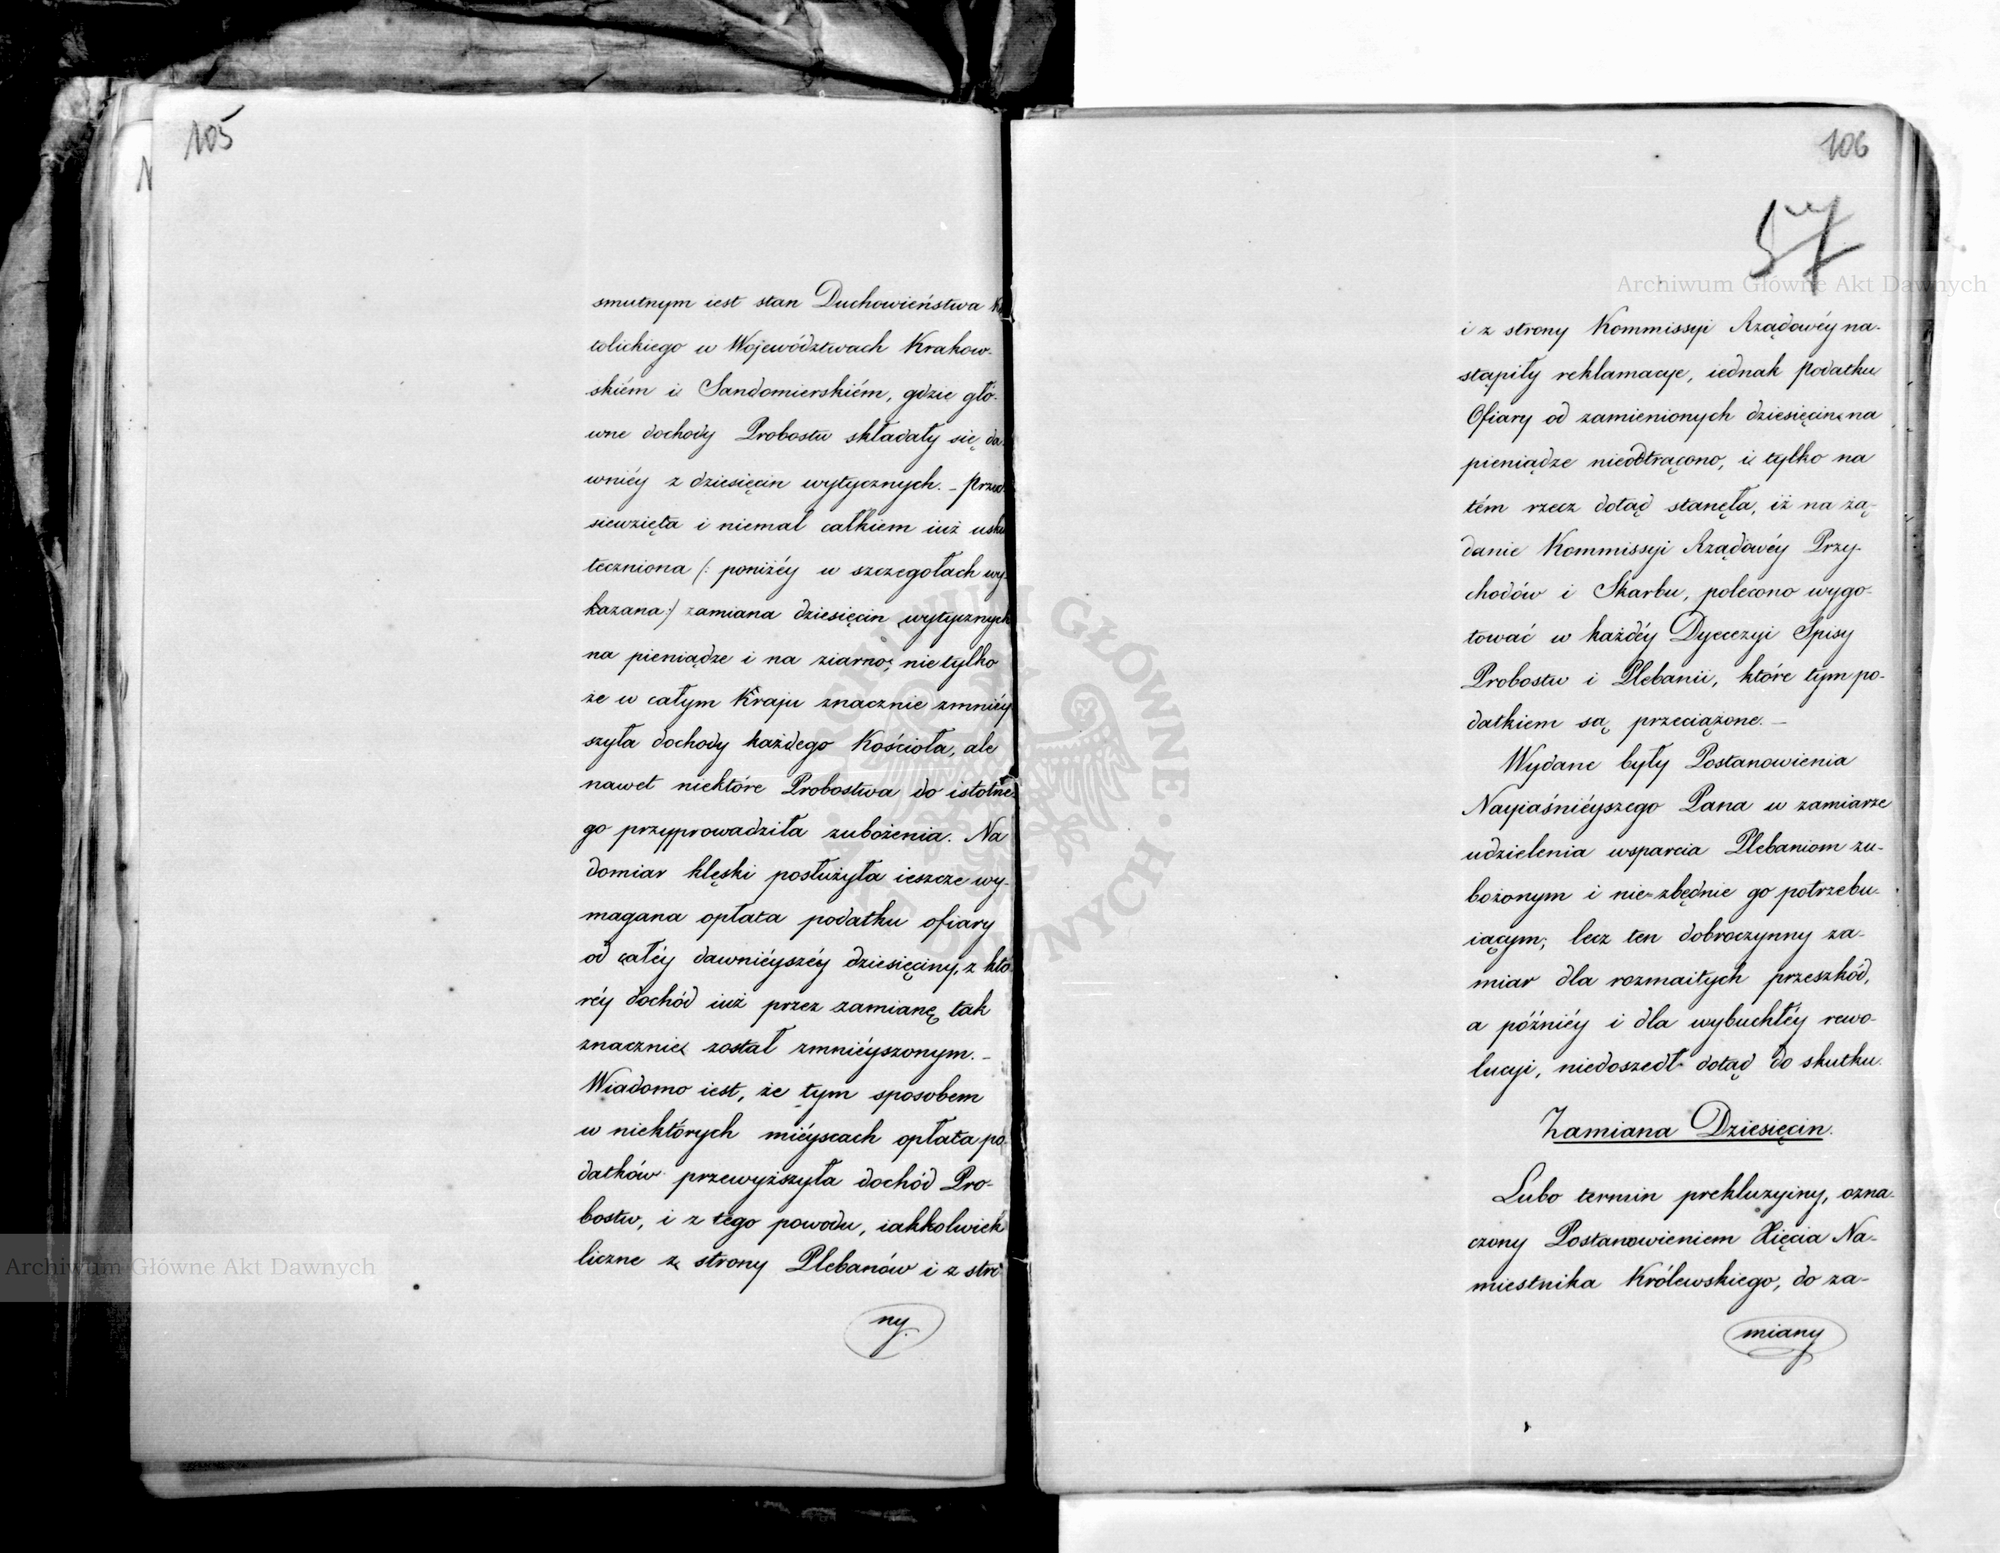 105
smutnym iest stan Duchowieństwa Ka
tolickiego w Województwach Krakow-
skiém i Sandomierskiém, gdzie głó-
wne dochody Probostw składały się da
wniéy z dziesięcin wytycznych. – Przed
siewzięta i niemal całkiem iuż usku
teczniona /: poniżéy w szczegołach wy-
kazana:/ zamiana dziesięcin wytycznych
na pieniądze i na ziarno; nietylko
że w całym Kraju znacznie zmniéy
szyła dochody każdego Kościoła, ale
nawet niektóre Probostwa do istotne-
go przyprowadziła zubożenia. Na
domiar klęski posłużyła ieszcze wy-
magana opłata podatku ofiary
od całéy dawniéyszéy dziesięciny, z któ
réy dochód iuż przez zamianę tak
znacznie został zmniéyszonym. –
Wiadomo iest, że tym sposobem
w niektórych miéyscach opłata po-
datków przewyższyła dochód Pro-
bostw, i z tego powodu, iakkolwiek
liczne ze strony Plebanów i z stro
ny.
106
57
i z strony Kommissyi Rządowéy na-
stąpiły reklamacye, iednak podatku
Ofiary od zamienionych dziesięcin na
pieniądze nieodtrącono, i tylko na
tém rzecz dotąd stanęła, iż na żą-
danie Kommissyi Rządowéy Przy-
chodów i Skarbu, polecono wygo-
tować w każdéy Dyecezyi Spisy
Probostw i Plebanii, które tym po-
datkiem są przeciążone. –
Wydane były Postanowienia
Nayiaśniéyszego Pana w zamiarze
udzielenia wsparcia Plebaniom zu-
bożonym i nie-zbędnie go potrzebu-
iącym; lecz ten dobroczynny za-
miar dla rozmaitych przeszkód,
a późniéy i dla wybuchłéy rewo-
lucyi, niedoszedł dotąd do skutku.
Zamiana Dziesięcin.
Lubo termin prekluzyiny, ozna-
czony Postanowieniem Xięcia Na-
miestnika Królewskiego, do za-
miany
Archiwum Główne Akt Dawnych
Archiwum Główne Akt Dawnych
ARCHIWUM GŁÓWNE AKT DAWNYCH